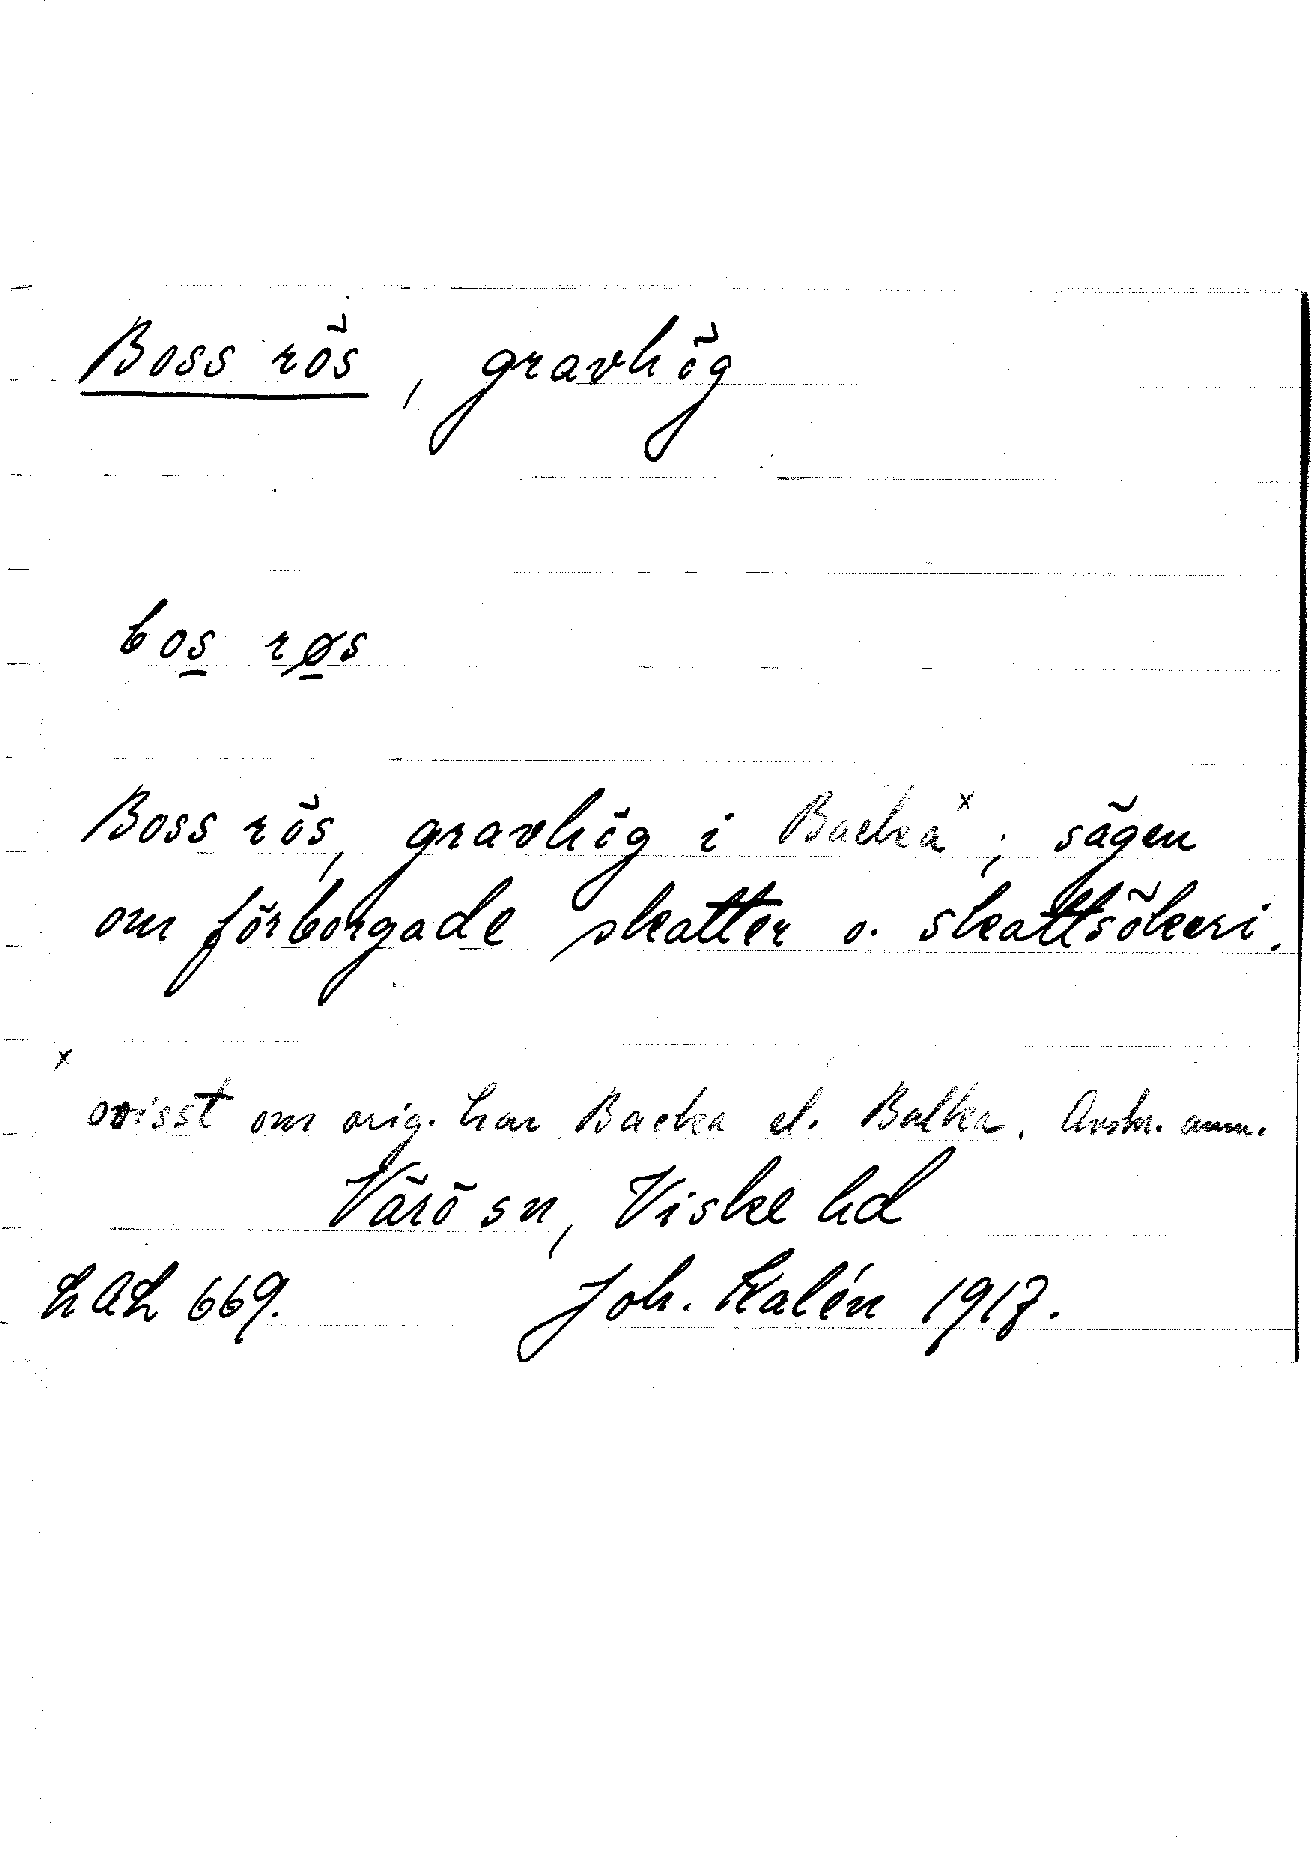 Boss rös, gravhög
bos røs
Boss rös, gravhög i Backa x; sägen
om förborgade skatter o. skattsökeri.
x
ovisst om orig. har Backa el. Balka. Avskr. anm.
Värö sn, Viske hd
LAL 669. Joh. Kalén 1917.